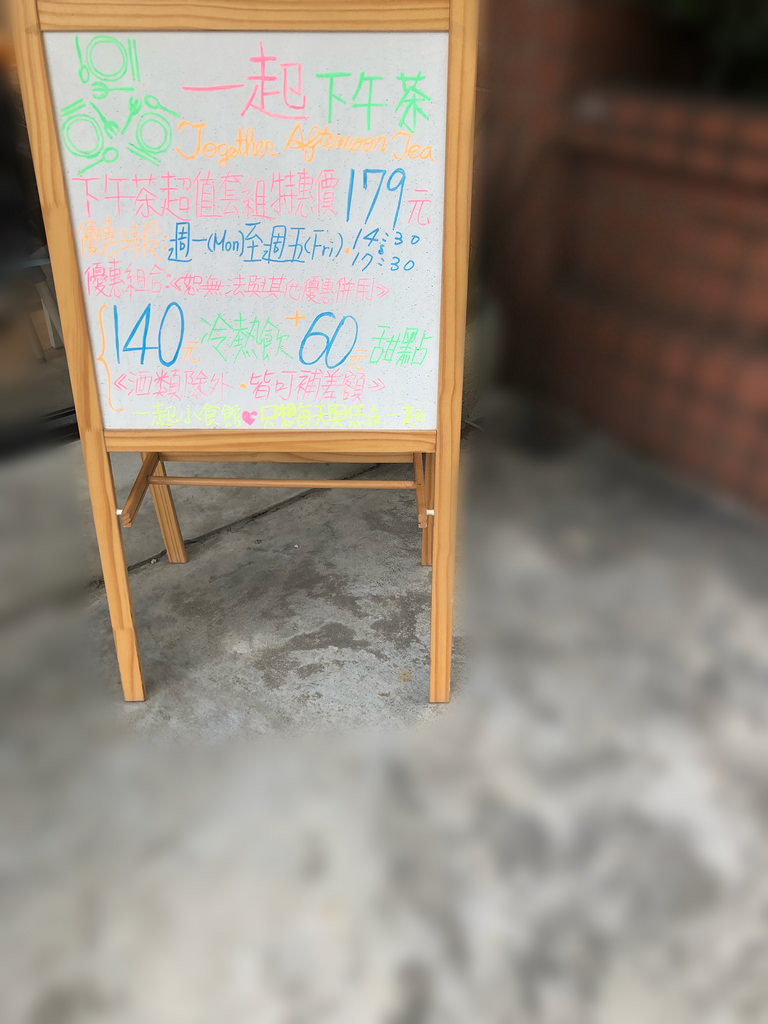 一起下午茶
Together Afternoon Tea
下午茶超值套組特惠價179元
優惠時段:週一(Mon)至週五(Fri)·14:30
17:30
優惠組合:《恕無法與其他優惠併用》
140元冷熱飲+60元甜點
《酒類除外·皆可補差額》
一起小食館